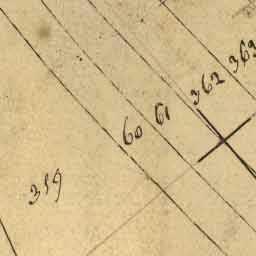 363
362
61
60
319